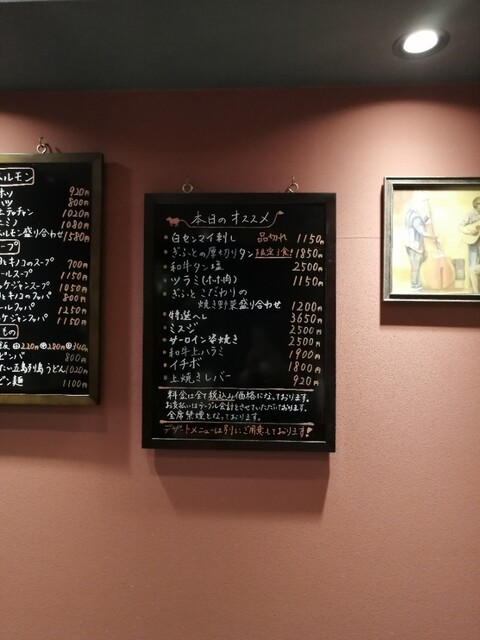 ホルモン
920円
ハツ 800円
1020円
ミノ 1080円
ホルモン盛り合わせ 1580円
スープ
キノコのスープ 700円
テールスープ 1150円
ユッケジャンスープ 1050円
キノコのクッパ 800円
テールクッパ 1250円
ユッケジャンクッパ 1150円
220円 280円 340円
ビビンバ 800円
五島列島うどん 1020円
ビビン麺 1100円
本日のオススメ
白センマイ刺し 品切れ 1150円
ぎゅっとの厚切りタン 限定1食! 1850円
和牛タン塩 2500円
ツラミ(ホホ肉) 1150円
ぎゅっとこだわりの
焼き野菜盛り合わせ 1200円
特選ヘレ 3650円
ミスジ 2500円
サーロイン炙焼き 2500円
和牛上ハラミ 1900円
イチボ 1800円
上焼きレバー 920円
料金は全て税込み価格になっております。
お支払いはテーブル会計とさせていただいております。
全席禁煙となっております。
デザートメニューは別にご用意しております!